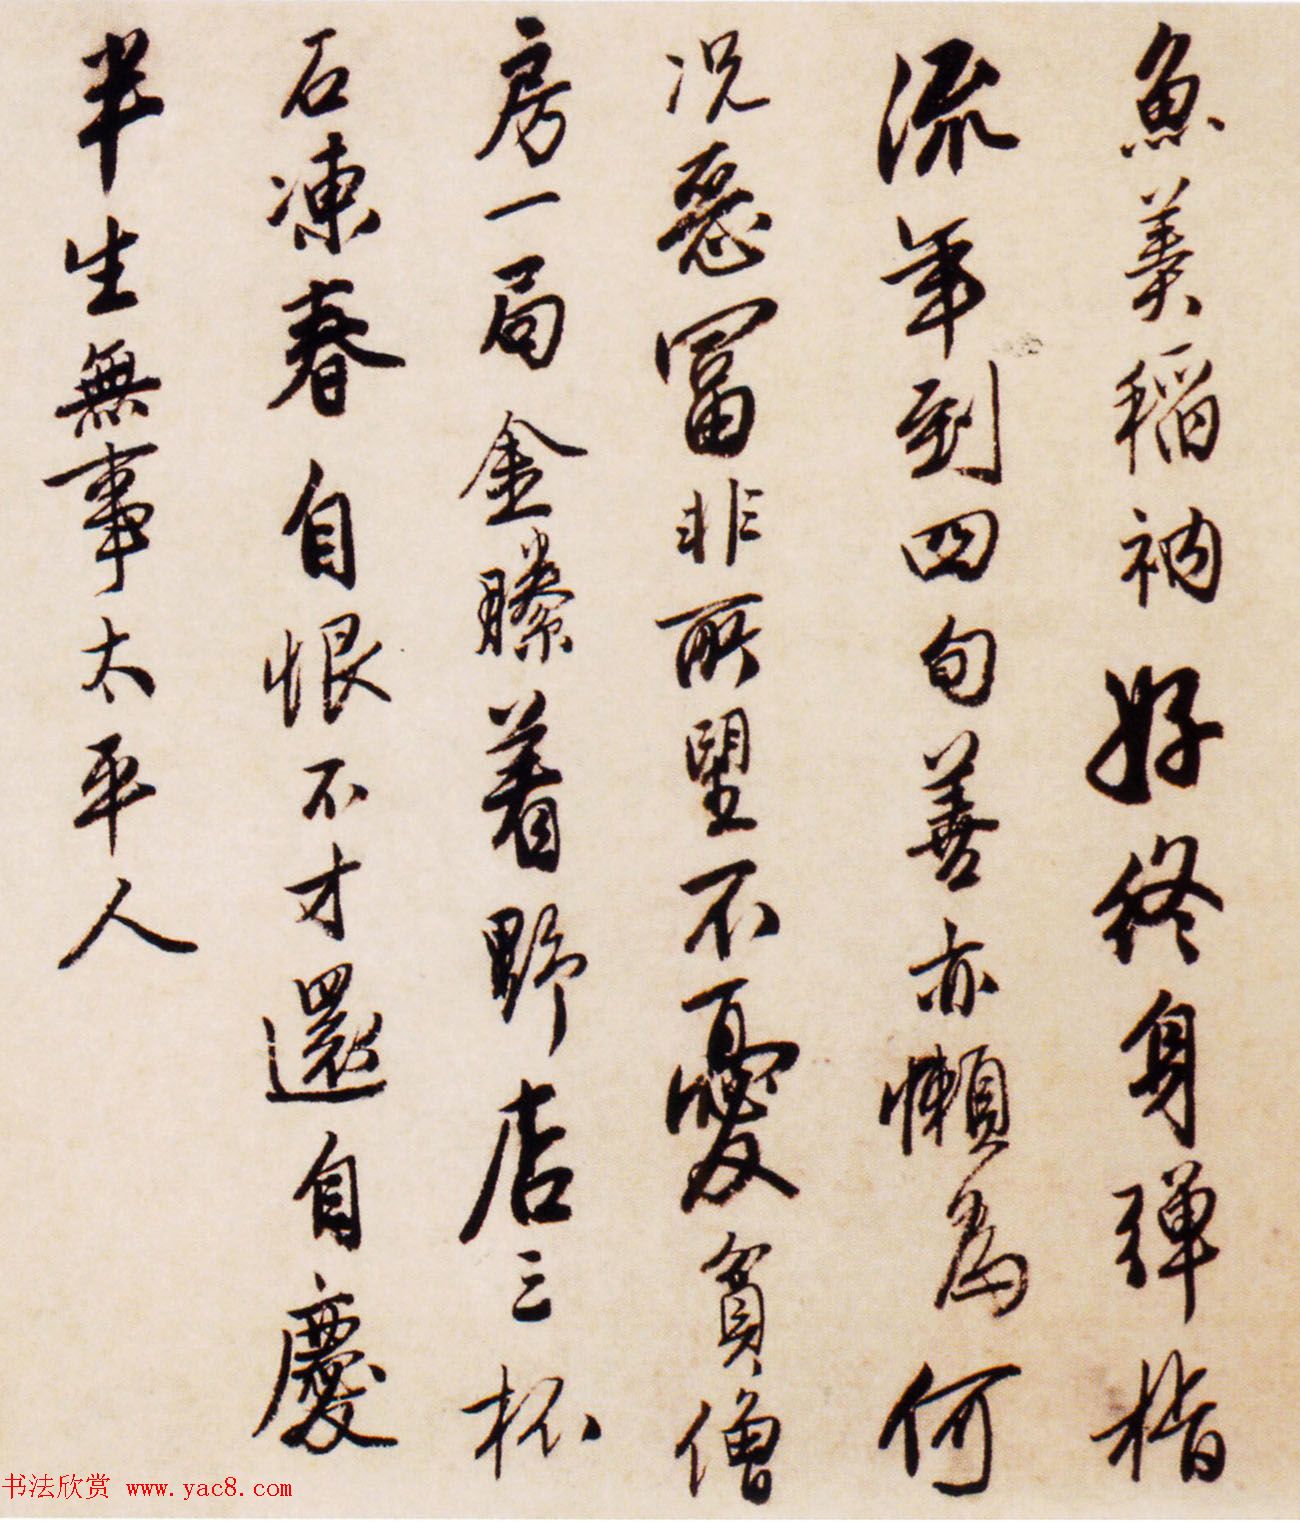 魚羹稻衲好終身彈指
流年到四旬善亦懶為何
況惡冨非所望不憂貧僧
房一局金縢着野店三杯
石凍春自恨不才還自慶
半生無事太平人
书法欣赏 www.yac8.com